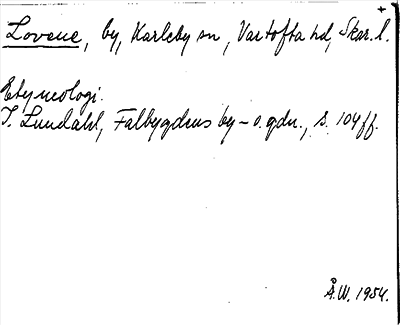 +
Lovene, by, Karleby sn, Vartofta hd, Skar. l.
Etymologi.
I. Lundahl, Falbygdens by- o. gdn., s. 104 ff.
Å.W. 1954.